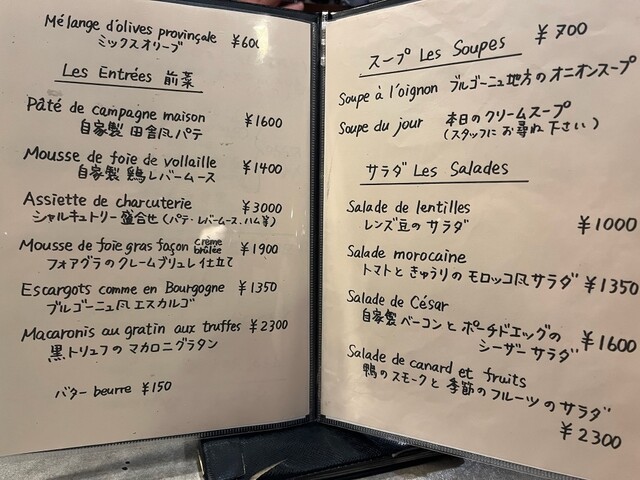 Mélange d'olives provinçale ¥600
ミックスオリーブ
Les Entrées 前菜
Pâté de campagne maison ¥1600
自家製 田舎風パテ
Mousse de foie de vollaille ¥1400
自家製 鶏レバームース
Assiette de charcuterie ¥3000
シャルキュトリー盛合せ(パテ・レバームース、ハム等)
Mousse de foie gras façon crème brûlée ¥1900
フォアグラのクレームブリュレ仕立て
Escargots comme en Bourgogne ¥1350
ブルゴーニュ風エスカルゴ
Macaronis au gratin aux truffes ¥2300
黒トリュフのマカロニグラタン
バター beurre ¥150
スープ Les Soupes ¥700
Soupe à l'oignon ブルゴーニュ地方のオニオンスープ
Soupe du jour 本日のクリームスープ
(スタッフにお尋ね下さい)
サラダ Les Salades
Salade de lentilles
レンズ豆のサラダ ¥1000
Salade morocaine
トマトときゅうりのモロッコ風サラダ ¥1350
Salade de César
自家製ベーコンとポーチドエッグの
シーザーサラダ ¥1600
Salade de canard et fruits
鴨のスモークと季節のフルーツのサラダ
¥2300